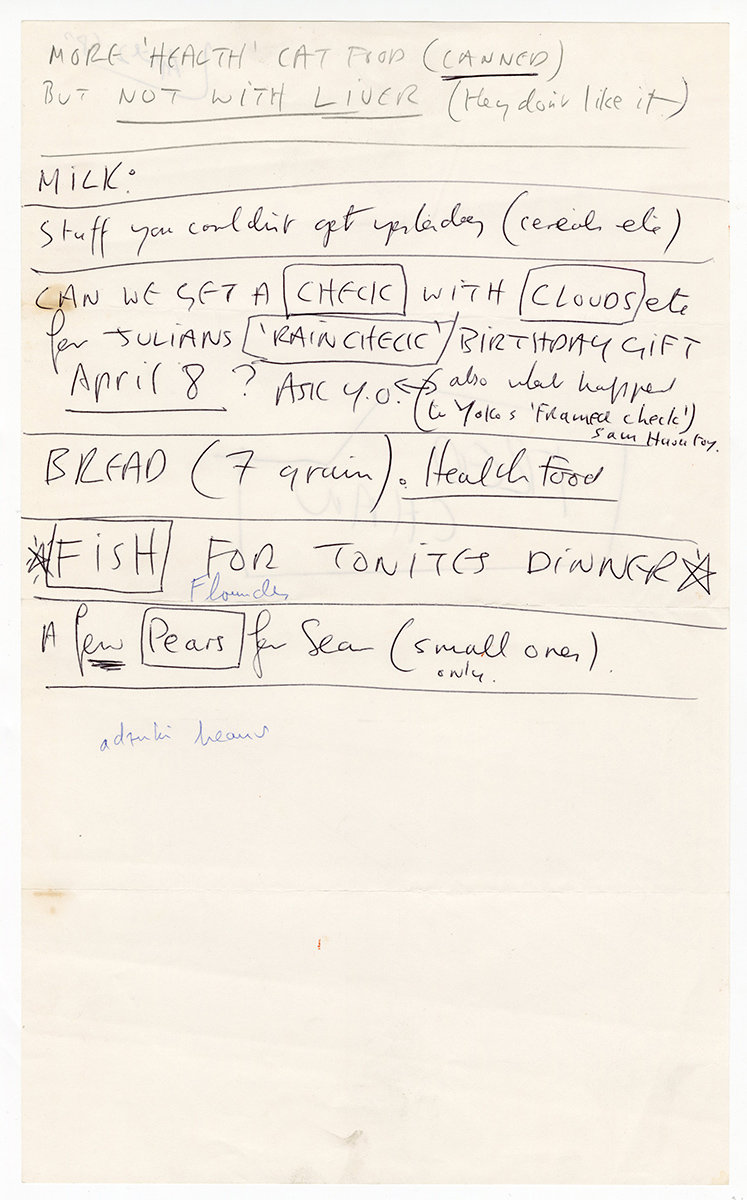 MORE 'HEALTH' CAT FOOD (CANNED)
BUT NOT WITH LIVER (they don't like it)
MILK:
Stuff you couldn't get yesterday (cereals etc)
CAN WE GET A CHECK WITH CLOUDS etc
for JULIANS 'RAINCHECK' / BIRTHDAY GIFT
April 8 ? ASK Y.O. also what happen
(to Yoko's 'Framed check')
Sam
BREAD (7 grain). Health Food
FISH FOR TONITES DINNER
Flounder
A few Pears for Sean (small ones).
only.
adzuki beans